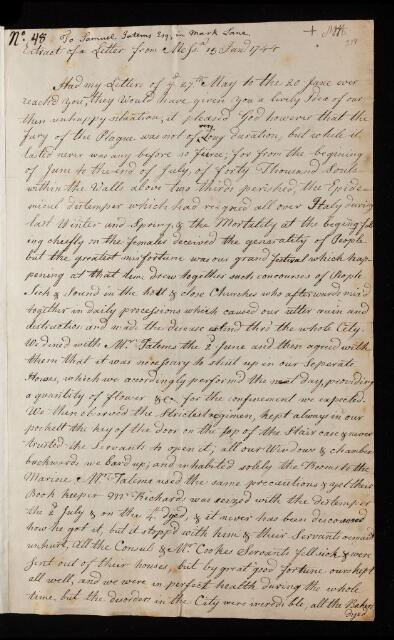 No. 48 To Samuel Tatems Esq; in Mark Lane,
Extract of a Letter from Messa. 15 Jany 1744
Had my Letters of ye 27th May to the 20 June ever
reached you, they would have given you a lively Idea of our
then unhappy situation, it pleased God however that the
fury of the Plague was not of very long duration, but while it
lasted never was any before so fierce; for from the begining
of June to the End of July, of forty Thousand Souls
within the Walls above two thirds perished, the Epide-
mical distemper which had reigned all over Italy during
last Winter and Spring, & the Mortality at the begining fal-
ing cheefly on the females deceived the generality of People
but the greatest misfortune was our grand festival which hap-
pening at that time drew together such concourses of People
Sick & Sound in the hott & close Churches who afterwards mix'd
together in daily processions which caused our utter ruin and
distruction and made the decease extend thro' the whole City
We dined with Mr. Tatems the 2 June and then agreed with
them that it was necessary to shut up in our Seperate
Houses, which we accordingly performed the next day, providing
a quantity of flower &c. for the confinement we expected.
We then observed the Strictest regimen, kept always in our
pockett the key of the door on the top of the Stair case & never
trusted the Servants to open it, all our Windows & chambers
backwards we bard up; and inhabited solely the Rooms to the
Marine. Mr. Tatems used the same precautions & yet their
Book keeper Mr. Richard, was seized with the distemper
the 2 July & on the 4th dyed, & it never has been discovered
how he got it, but it stopp'd with him & their Servants remain'd
unhurt, All the Consul & Mr. Cookes Servants fell sick & were
sent out of their houses, but by great good fortune ours kept
all well, and we were in perfect health during the whole
time, but the disorders in the City were incredible, all the Bakers
dyed